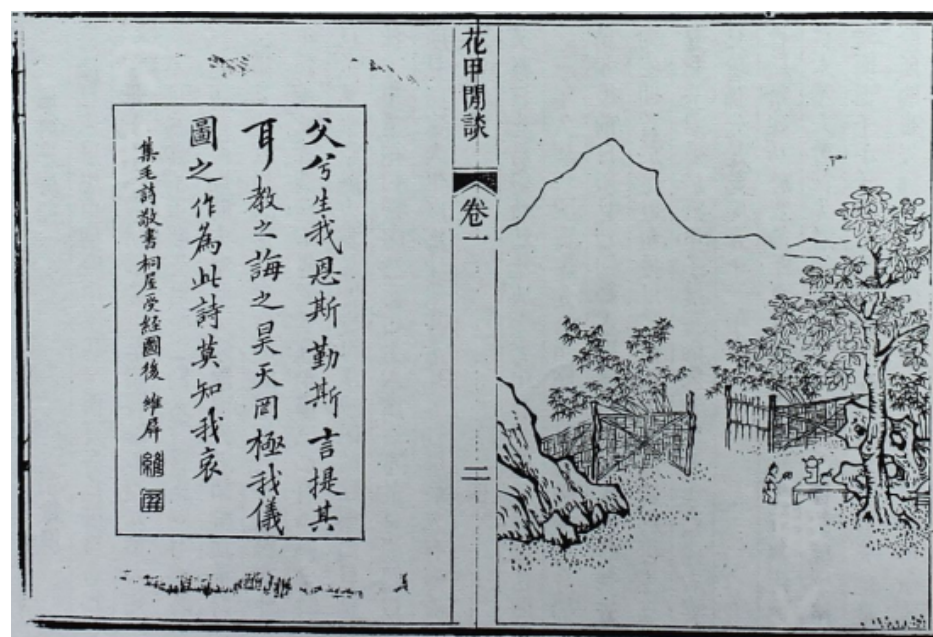 花甲閒談
卷一
二
父兮生我恩斯勤斯言提其
耳教之誨之昊天罔極我儀
圖之作為此詩莫知我哀
集毛詩敬書桐屋受經圖後 維屏